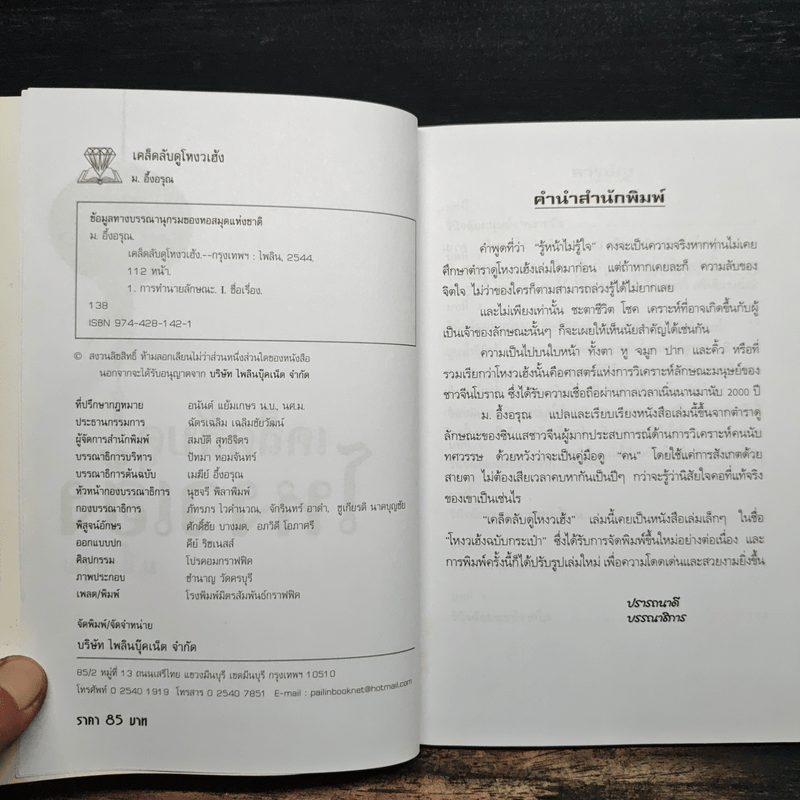 เคล็ดลับดูโหงวเฮ้ง
ม. อึ้งอรุณ
ข้อมูลทางบรรณานุกรมของหอสมุดแห่งชาติ
ม. อึ้งอรุณ.
เคล็ดลับดูโหงวเฮ้ง.--กรุงเทพฯ : ไพลิน, 2544.
112 หน้า.
1. การทำนายลักษณะ. I. ชื่อเรื่อง.
138
ISBN 974-428-142-1
© สงวนลิขสิทธิ์ ห้ามลอกเลียนไม่ว่าส่วนหนึ่งส่วนใดของหนังสือ
นอกจากจะได้รับอนุญาตจาก บริษัท ไพลินบุ๊คเน็ต จำกัด
ที่ปรึกษากฎหมาย อนันต์ แย้มเกษร น.บ., นศ.ม.
ประธานกรรมการ ฉัตรเฉลิม เฉลิมชัยวัฒน์
ผู้จัดการสำนักพิมพ์ สมบัติ สุทธิจิตร
บรรณาธิการบริหาร ปัทมา หอมจันทร์
บรรณาธิการต้นฉบับ เมฆีย์ อึ้งอรุณ
หัวหน้ากองบรรณาธิการ นุชจรี พิลาพิมพ์
กองบรรณาธิการ ภัทรภร ไวคำนวณ, จักรินทร์ อาดำ, ชูเกียรติ นาคบุญชัย
พิสูจน์อักษร ศักดิ์ชัย บางมด, อภวิดี โอภาศรี
ออกแบบปก คีย์ ริชเนสส์
ศิลปกรรม โปรคอมกราฟฟิค
ภาพประกอบ ชำนาญ วัดครบุรี
เพลต/พิมพ์ โรงพิมพ์มิตรสัมพันธ์กราฟฟิค
จัดพิมพ์/จัดจำหน่าย
บริษัท ไพลินบุ๊คเน็ต จำกัด
85/2 หมู่ที่ 13 ถนนเสรีไทย แขวงมีนบุรี เขตมีนบุรี กรุงเทพฯ 10510
โทรศัพท์ 0 2540 1919 โทรสาร 0 2540 7851 E-mail : pailinbooknet@hotmail.com
ราคา 85 บาท
คำนำสำนักพิมพ์
คำพูดที่ว่า "รู้หน้าไม่รู้ใจ" คงจะเป็นความจริงหากท่านไม่เคย
ศึกษาตำราดูโหงวเฮ้งเล่มใดมาก่อน แต่ถ้าหากเคยละก็ ความลับของ
จิตใจ ไม่ว่าของใครก็ตามสามารถล่วงรู้ได้ไม่ยากเลย
และไม่เพียงเท่านั้น ชะตาชีวิต โชค เคราะห์ที่อาจเกิดขึ้นกับผู้
เป็นเจ้าของลักษณะนั้นๆ ก็จะเผยให้เห็นนัยสำคัญได้เช่นกัน
ความเป็นไปบนใบหน้า ทั้งตา หู จมูก ปาก และคิ้ว หรือที่
รวมเรียกว่าโหงวเฮ้งนั้นคือศาสตร์แห่งการวิเคราะห์ลักษณะมนุษย์ของ
ชาวจีนโบราณ ซึ่งได้รับความเชื่อถือผ่านกาลเวลาเนิ่นนานมานับ 2000 ปี
ม. อึ้งอรุณ แปลและเรียบเรียงหนังสือเล่มนี้ขึ้นจากตำราดู
ลักษณะของซินแสชาวจีนผู้มากประสบการณ์ด้านการวิเคราะห์คนนับ
ทศวรรษ ด้วยหวังว่าจะเป็นคู่มือดู "คน" โดยใช้แค่การสังเกตด้วย
สายตา ไม่ต้องเสียเวลาคบหากันเป็นปีๆ กว่าจะรู้ว่านิสัยใจคอที่แท้จริง
ของเขาเป็นเช่นไร
"เคล็ดลับดูโหงวเฮ้ง" เล่มนี้เคยเป็นหนังสือเล่มเล็กๆ ในชื่อ
"โหงวเฮ้งฉบับกระเป๋า" ซึ่งได้รับการจัดพิมพ์ขึ้นใหม่อย่างต่อเนื่อง และ
การพิมพ์ครั้งนี้ก็ได้ปรับรูปเล่มใหม่ เพื่อความโดดเด่นและสวยงามยิ่งขึ้น
ปรารถนาดี
บรรณาธิการ